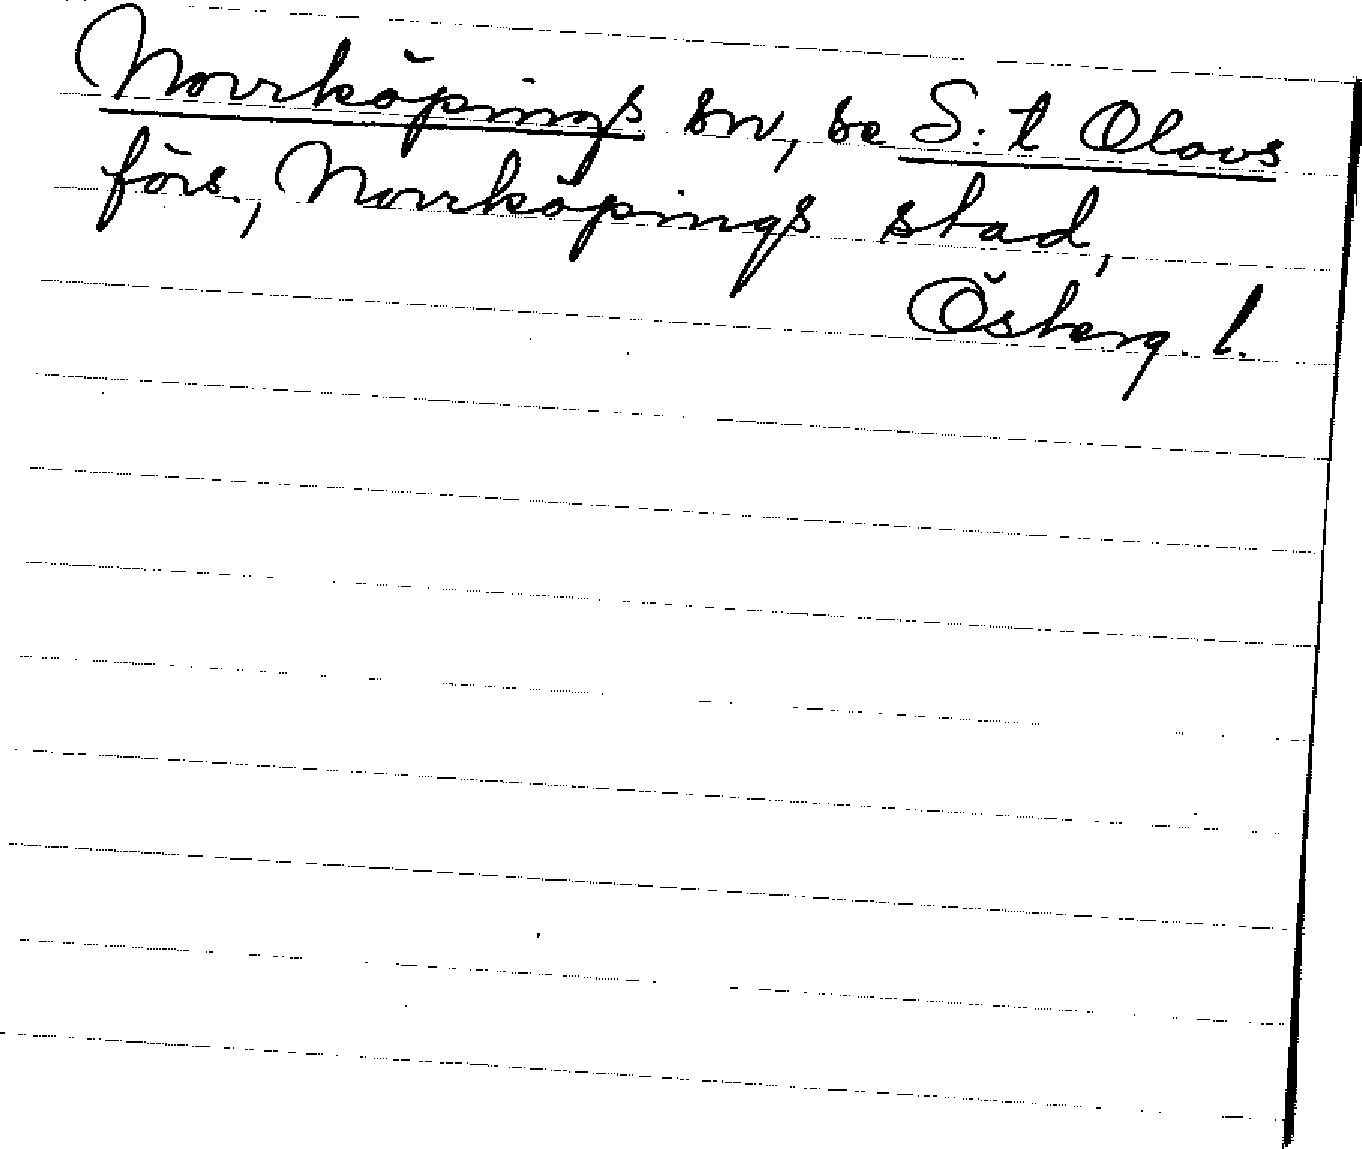 Norrköpings sn, se S:t Olovs
förs., Norrköpings stad,
Österg. l.